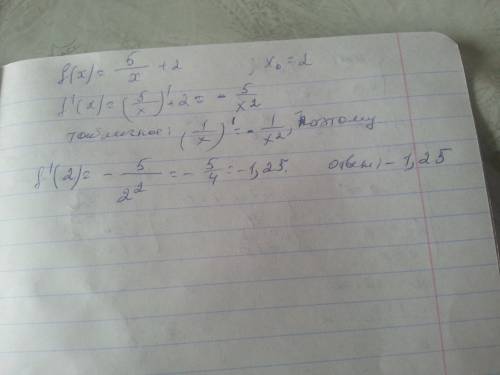 f(x) = 5/x + 2 ; x₀ = 2
f'(x) = (5/x)' + 2 = - 5/x²
табличное: (1/x)' = - 1/x², поэтому
f'(2) = - 5/2² = - 5/4 = -1,25. ответ: - 1,25